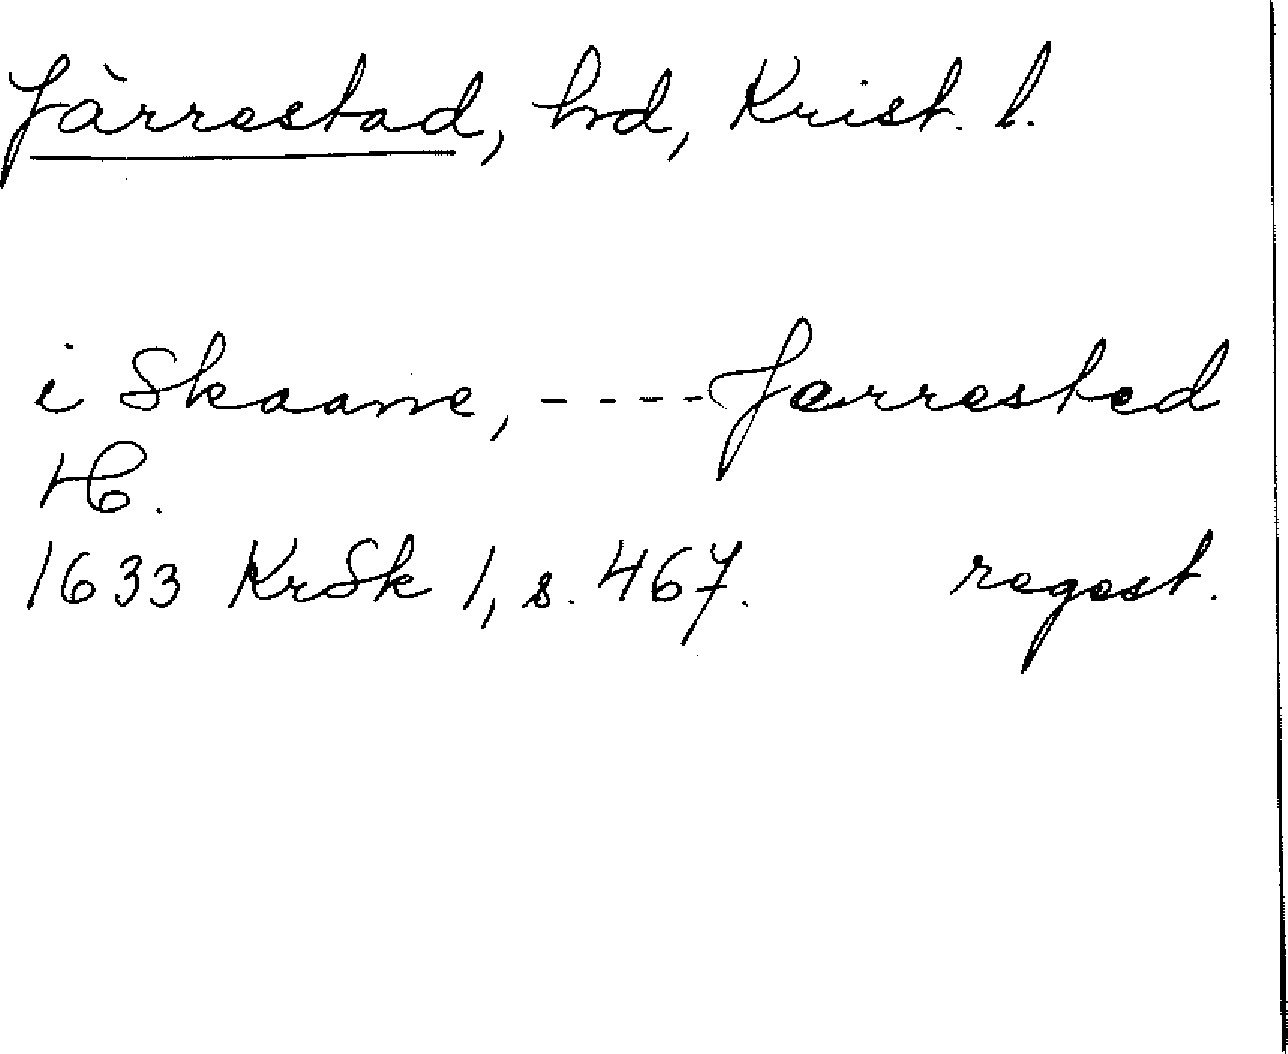 Järrestad, hd, Krist. l.
i Skaane, ---- Jerrested
H.
1633 KrSk 1, s. 467. regest.